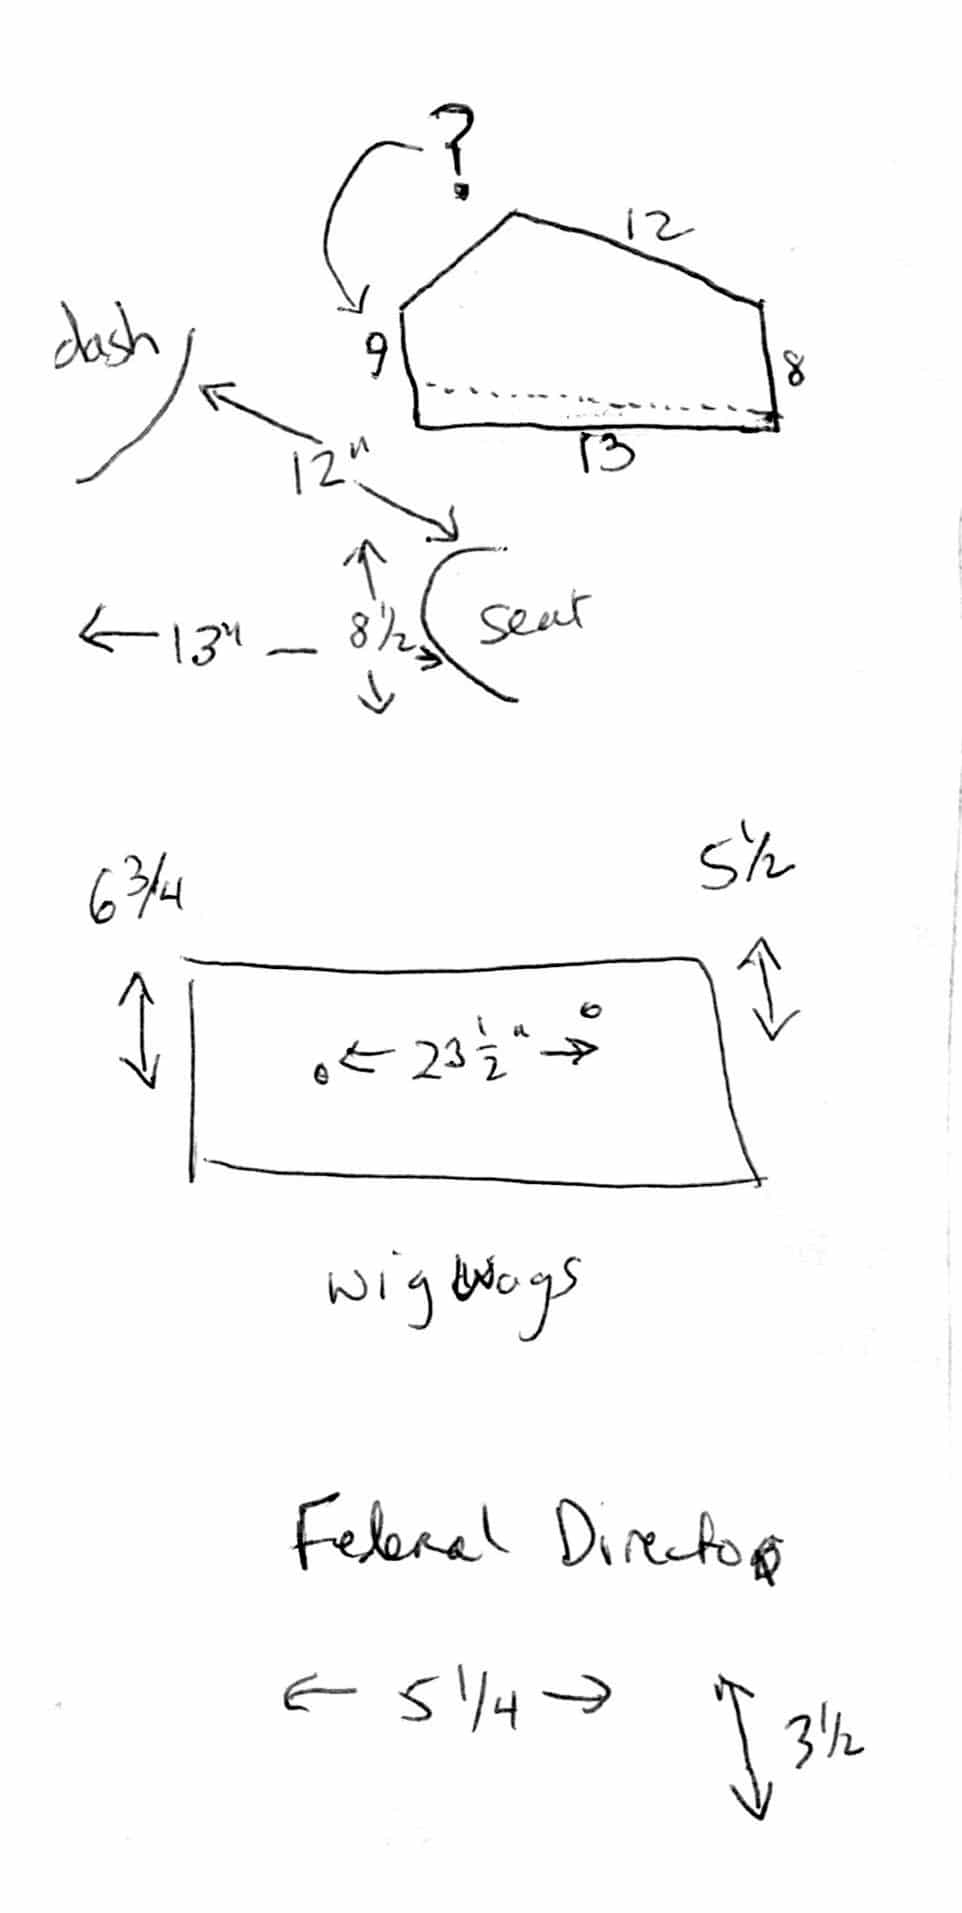 ?
12
dash
9
8
13
12"
13" — 8 1/2
seat
6 3/4
5 1/2
23 1/2"
wigwags
Federal Director
5 1/4
3 1/2